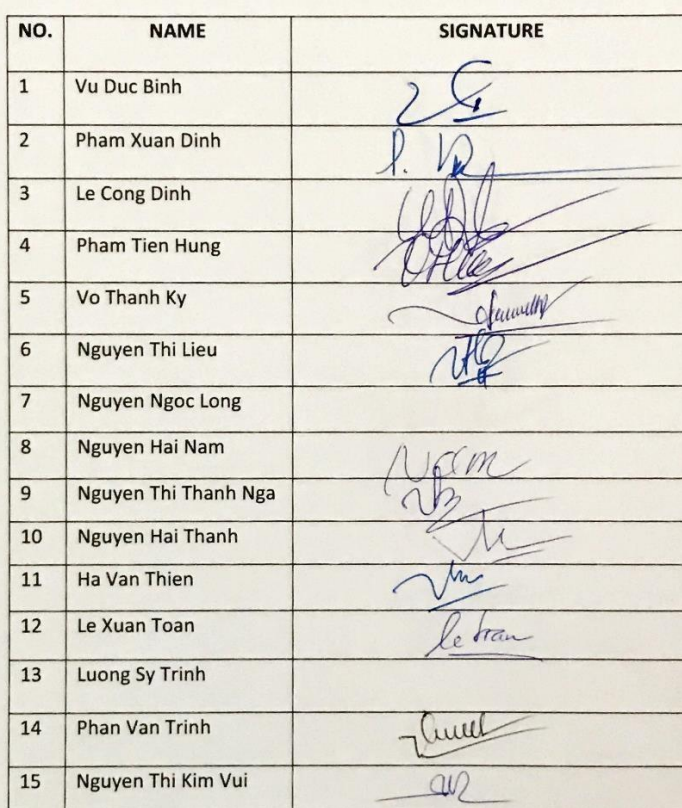 NO. NAME SIGNATURE
1 Vu Duc Binh
2 Pham Xuan Dinh
3 Le Cong Dinh
4 Pham Tien Hung
5 Vo Thanh Ky
6 Nguyen Thi Lieu
7 Nguyen Ngoc Long
8 Nguyen Hai Nam
9 Nguyen Thi Thanh Nga
10 Nguyen Hai Thanh
11 Ha Van Thien
12 Le Xuan Toan
13 Luong Sy Trinh
14 Phan Van Trinh
15 Nguyen Thi Kim Vui